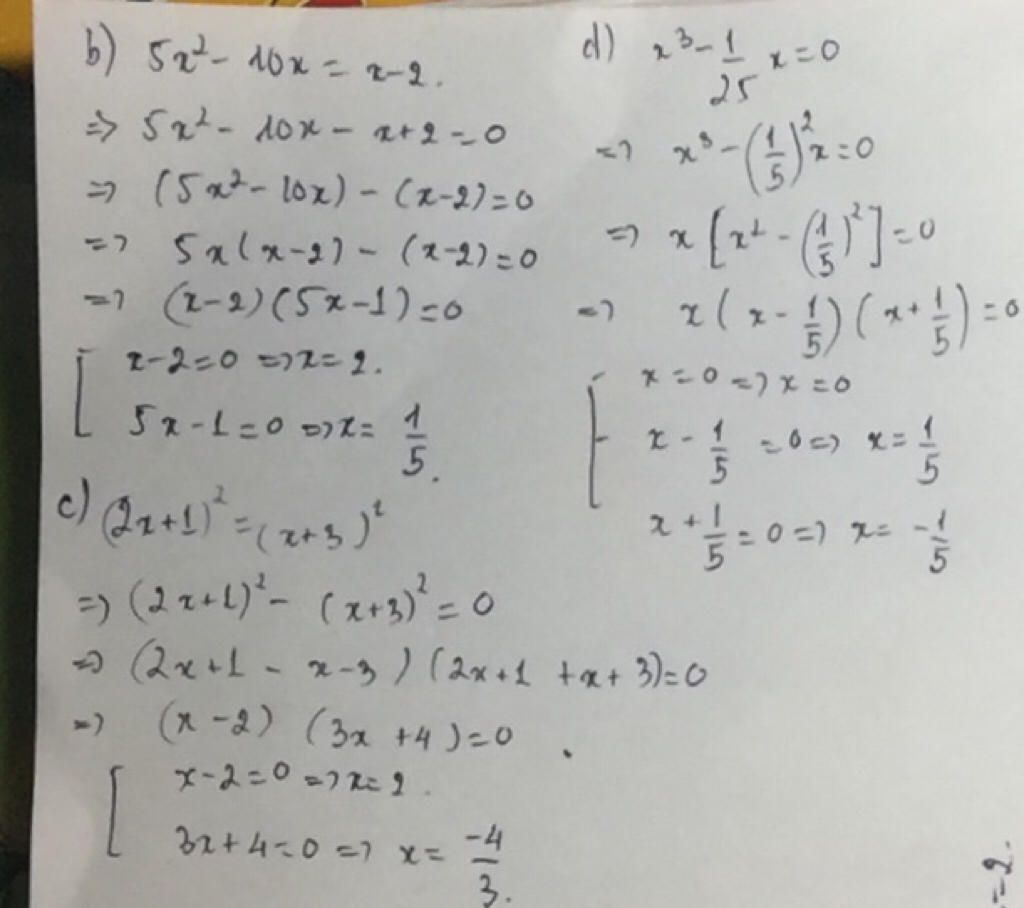 b) 5x² - 10x = x-2.
=> 5x² - 10x - x+2 = 0
=> (5x² - 10x) - (x-2) = 0
=> 5x(x-2) - (x-2) = 0
=> (x-2)(5x-1) = 0
[ x-2=0 => x=2.
5x-1=0 => x= 1/5.
c) (2x+1)² = (x+3)²
=> (2x+1)² - (x+3)² = 0
=> (2x+1 - x-3)(2x+1 +x+3)=0
=> (x-2) (3x+4)=0
[ x-2=0 => x=2.
3x+4=0 => x= -4/3.
d) x³ - 1/25 x=0
=> x³ - (1/5)²x=0
=> x[x² - (1/5)²]=0
=> x(x - 1/5)(x + 1/5)=0
[ x=0 => x=0
x - 1/5 =0 => x= 1/5
x + 1/5 =0 => x= -1/5
=-2.